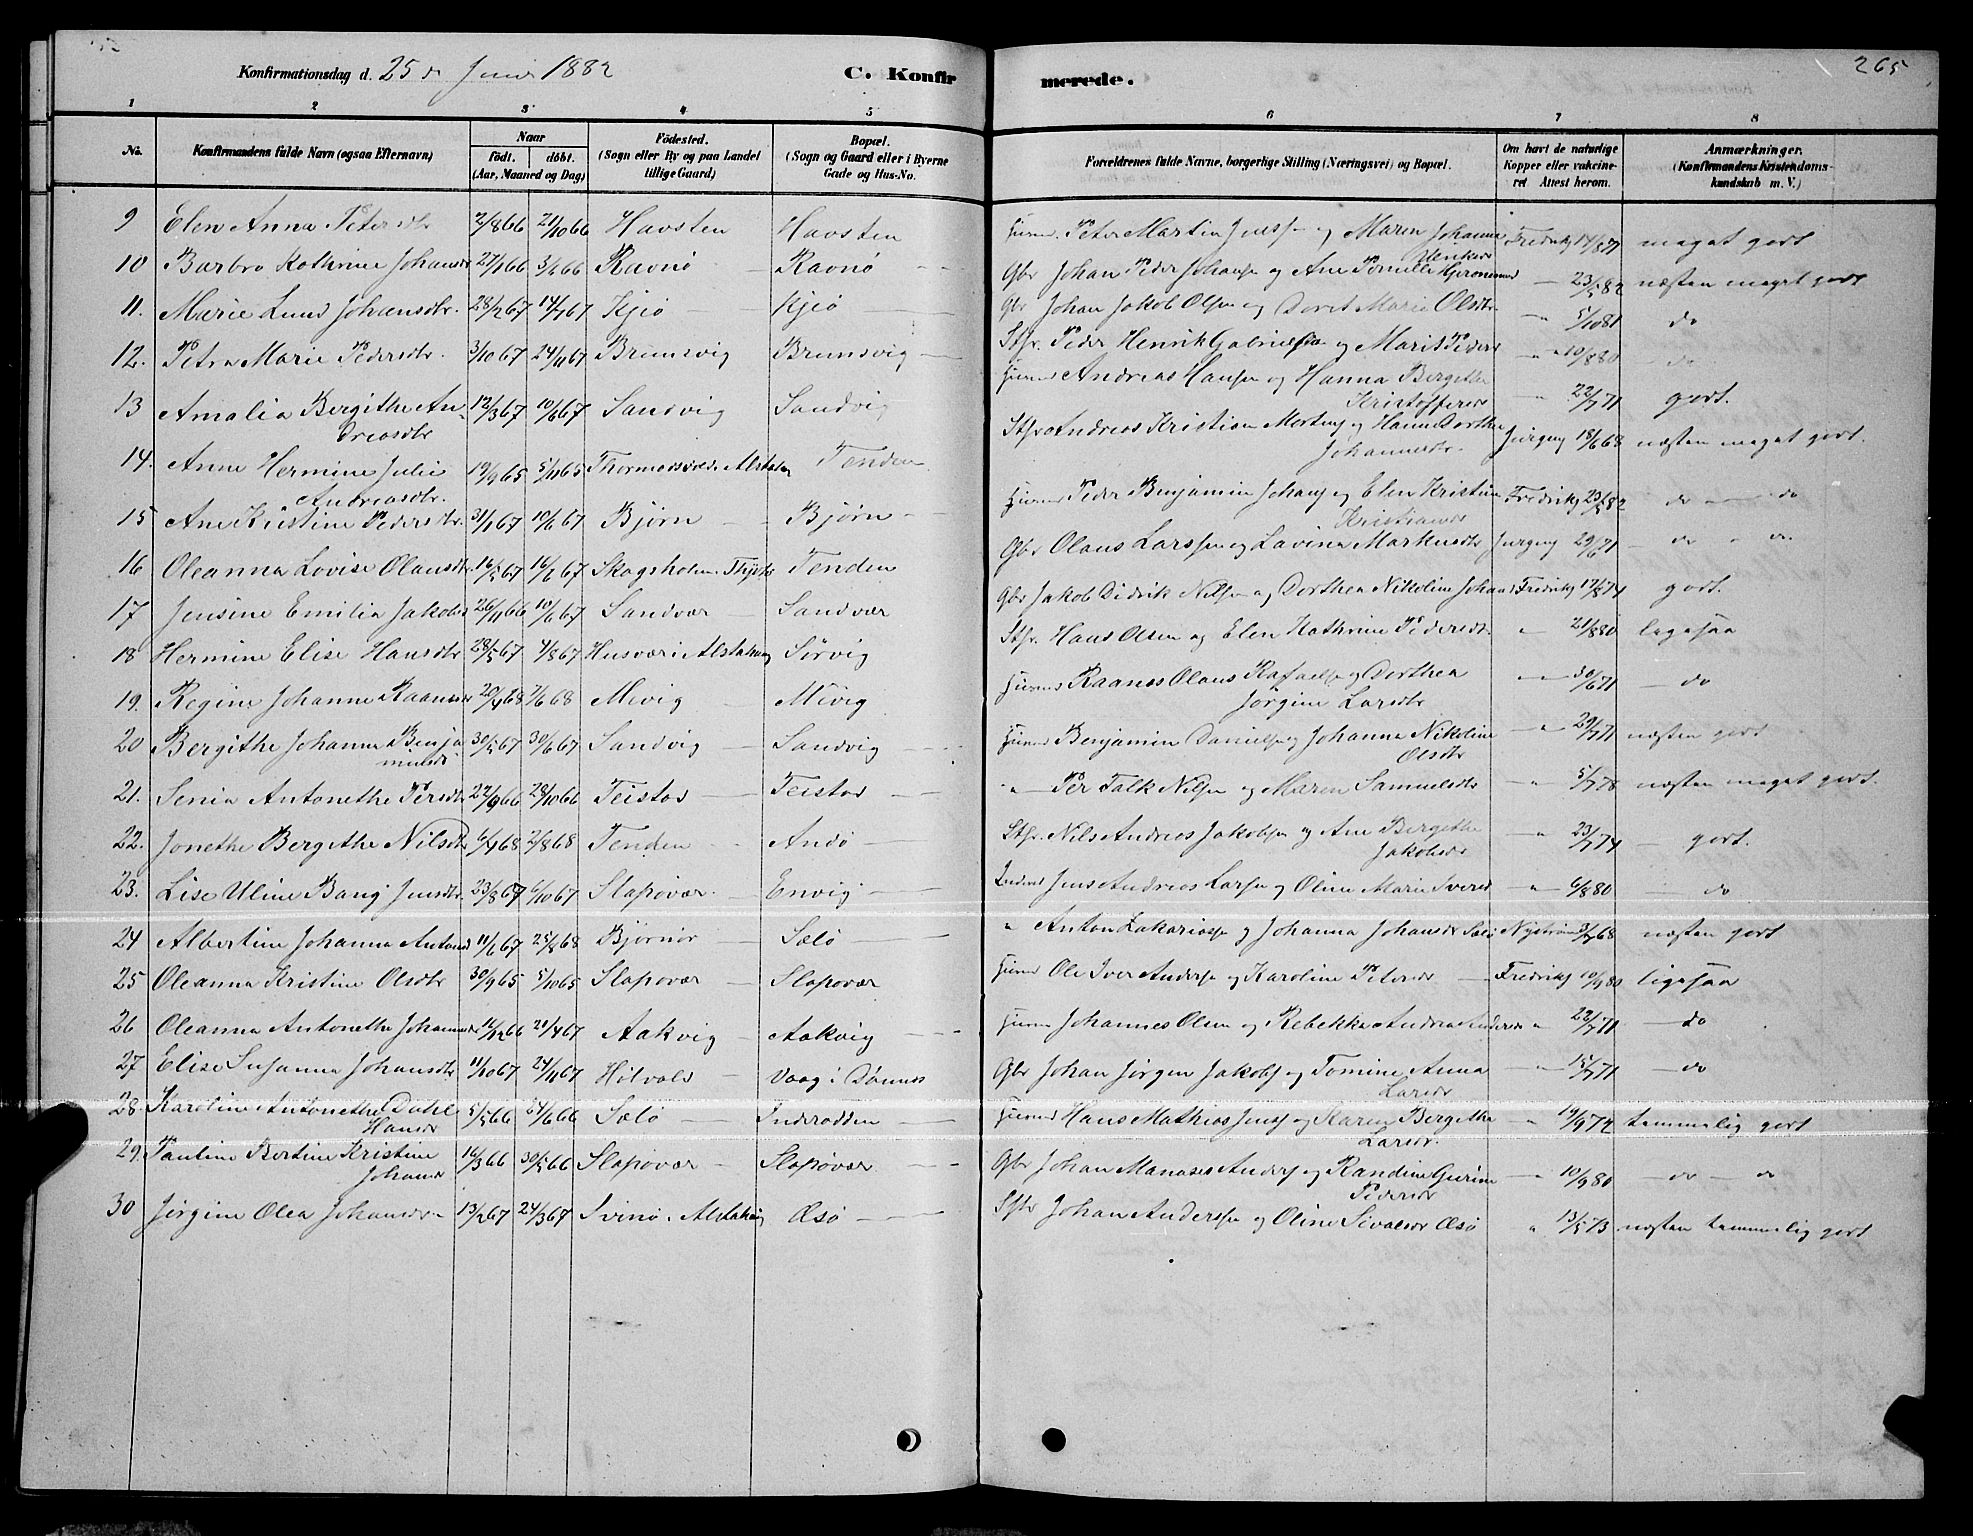 Konfirmationsdag d. 25 de Juni 1882 C. Konfirmerede. 265
1 2 3 4 5 6 7 8
No. Konfirmandens fulde Navn (ogsaa Efternavn) Naar födt. döbt. (Aar, Maaned og Dag) Födested. (Sogn eller By og paa Landet tillige Gaard) Bopæl. (Sogn og Gaard eller i Byerne Gade og Hus-No. Forældrenes fulde Navne, borgerlige Stilling (Næringsvei) og Bopæl. Om havt de naturlige Kopper eller vakcineret Attest herom. Anmærkninger. (Konfirmandens Kristendomskundskab m. V.)
9 Elen Anna Petersdtr 2/8 66 21/10 66 Havsten Havsten Peter Martin Jenss og Maren Johanna Fredriks 14/8 71 meget godt
10 Barbro Kathrine Johansdr 27/1 66 3/2 66 Ravnø Ravnø Gbr Johan Peder Johans og Ane Pernille 23/5 82 næsten meget godt
11. Marie Lund Johansdtr. 28/2 67 14/7 67 Kjeø Kjeø Gbr Johan Jakob Olsen og Doret Marie Olsdtr 5/10 81 do
12. Petra Marie Pedersdtr. 3/10 67 24/11 67 Brunsvig Brunsvig Stfr. Peder Henrik Gabrielsen og Marit Peders 10/8 80 do
13 Amalia Bergithe Andreasdtr 12/3 67 10/6 67 Sandvig Sandvig Andreas Hansen og Hanna Bergithe Kristoffersdr 22/7 71 godt.
14. Anne Hermine Julie Andreasdtr. 19/9 65 5/11 65 Alstahoug Tenden Stfr Andreas Kristian og Hanna Dorthea Johannesdr. 18/6 68 næsten meget godt.
15 Ane Kristine Pedersdtr. 3/1 67 10/6 67 Bjørn Bjørn Peder Benjamin Johans og Elen Kristine Kristiansdr Fredriks 23/5 82 do do
16 Oleanna Lovise Olausdtr 16/5 67 16/6 67 Skogsholm Thjøtta Tenden Gbr Olaus Larssen og Lavina Markusdtr 29/6 71 do
17 Jensine Emilia Jakobs 26/11 66 10/6 67 Sandvær Sandvær Gbr Jakob Didrik Nilsen og Dorthea Nikoline Johans Fredriks 17/8 74 godt.
18 Hermine Elise Hansdtr 28/5 67 4/8 67 Husvær i Alstahoug Sørvig Stfr. Hans Olsen og Elen Kathrine Pedersdr. 21/8 80 ligesaa
19. Regine Johanna Raanes 20/4 68 7/6 68 Mevig Mevig Raanes Olaus Rafaels og Dorthea Jørgine Larsdtr 30/6 71 do
20 Bergithe Johanna Benjaminsdr 30/5 67 30/6 67 Sandvig Sandvig Benjamin Daniels og Johanna Nikoline Olsdtr 29/7 71 næsten godt
21. Senia Antonethe Persdtr 22/9 66 28/10 66 Teistod Teistod Per Falk Nilsen og Maren Samuelsdtr 5/7 78 næsten meget godt.
22. Jonethe Bergithe Nilsdtr 6/4 68 2/8 68 Tenden Andø Stfr. Nils Andreas Jakobsen og Ane Bergithe Jakobsdr 23/7 74 godt.
23. Lise Uline Bang Jensdtr 23/8 67 6/10 67 Slapøvær. Envig Inderst Jens Andreas Larsen og Oline Marie 6/8 80 do
24 Albertine Johanna Antons 11/6 67 25/8 68 Bjørnør Sælø Anton Zakariass og Johanna Johansdr Sælø Nystrøm 3/7 68 næsten godt
25 Oleanna Kristine Olsdtr 30/9 65 5/10 65 Slapøvær Slapøvær Ole Iver Anders og Karoline Petersdr Fredriks 10/9 80 ligesaa
26 Oleanna Antonethe Johannes 16/12 66 21/4 67 Aakvig Aakvig Johannes Olsen og Rebekka Andrea Anders 22/7 71 do
27 Elise Susanna Johansdtr 11/10 67 24/11 67 Holvals Vaag i Dønnes Gbr Johan Jørgen Jakobs og Tomine Anna Larsdr 15/7 71 do
28 Karoline Antonethe Dahl Hansdr 5/5 66 24/6 66 Sælø Inderodden Hans Mathias Jens og Karen Bergitha Larsdr. 19/9 72 temmelig godt
29. Pauline Bertine Kristine Johans 16/3 66 30/5 66 Slapøvær Slapøvær Gbr Johan Manases Anders og Randine Gurine Pedersdr 10/9 80 do do
30 Jørgine Olea Johansdr 13/2 67 24/3 67 Svinø i Alstahoug Øsø Stfr Johan Anderssen og Oline Sivalsdr Øsø 13/5 73 næsten temmelig godt